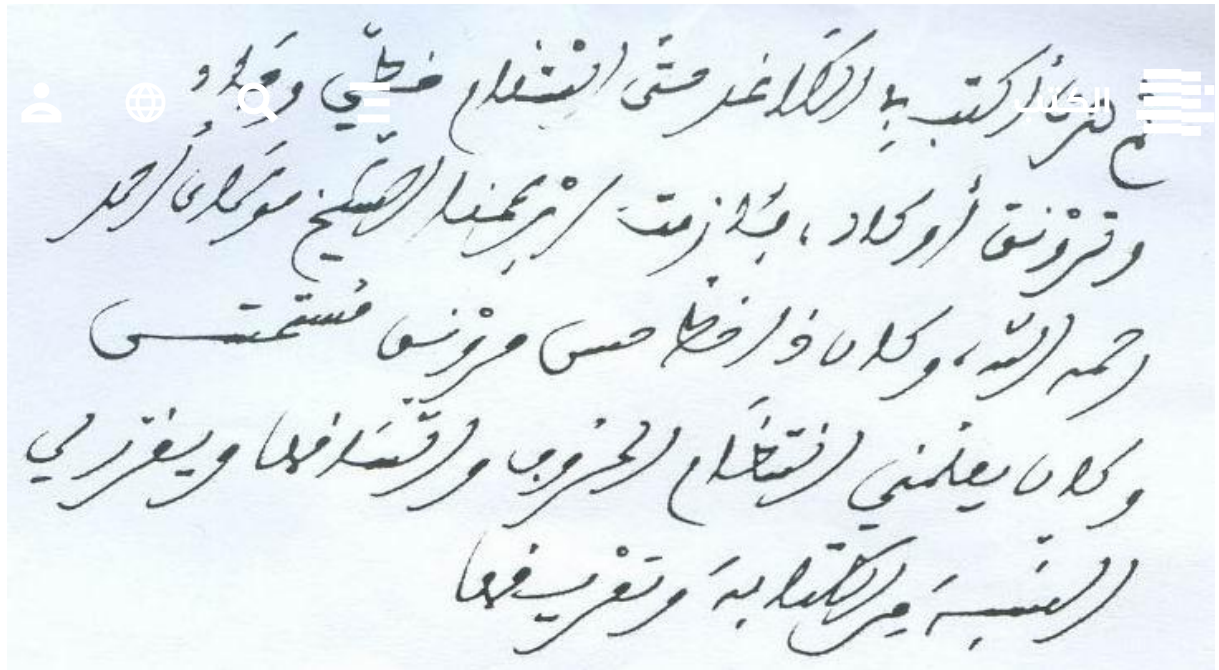 الكتب
أكتب به الكاغد حتى استقام خطي وجاد
وترونق أو كاد، فلازمت ابن عمنا الشيخ مولاي أحمد
رحمه الله، وكان ذا خط حسن مرونق مستحسن
وكان يعلمني انتظام الحروف واتساقها ويقرر لي
النسبة الكتابة وتعريقها